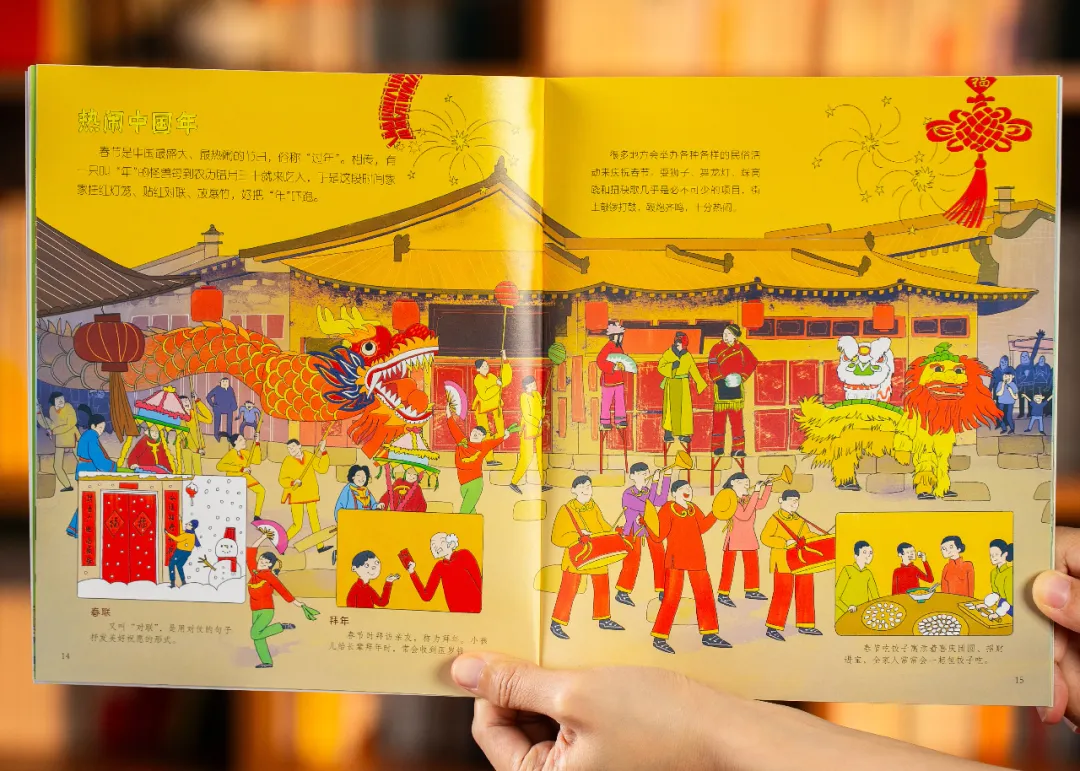 热闹中国年
春节是中国最盛大、最热闹的节日，俗称“过年”。相传，有
一只叫“年”的怪兽每到农历腊月三十就来吃人，于是这段时间家
家挂红灯笼、贴红对联、放爆竹，好把“年”吓跑。
很多地方会举办各种各样的民俗活
动来庆祝春节，耍狮子、舞龙灯、踩高
跷和扭秧歌几乎是必不可少的项目，街
上敲锣打鼓、鞭炮齐鸣，十分热闹。
福
春联
又叫“对联”，是用对仗的句子
抒发美好祝愿的形式。
拜年
春节时拜访亲友，称为拜年。小孩
儿给长辈拜年时，常会收到压岁钱
春节吃饺子寓意着喜庆团圆、招财
进宝，全家人常常会一起包饺子吃。
14
15